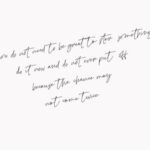 do not need to be great to start something
do it now and do not ever put off
because the chance may
not come twice